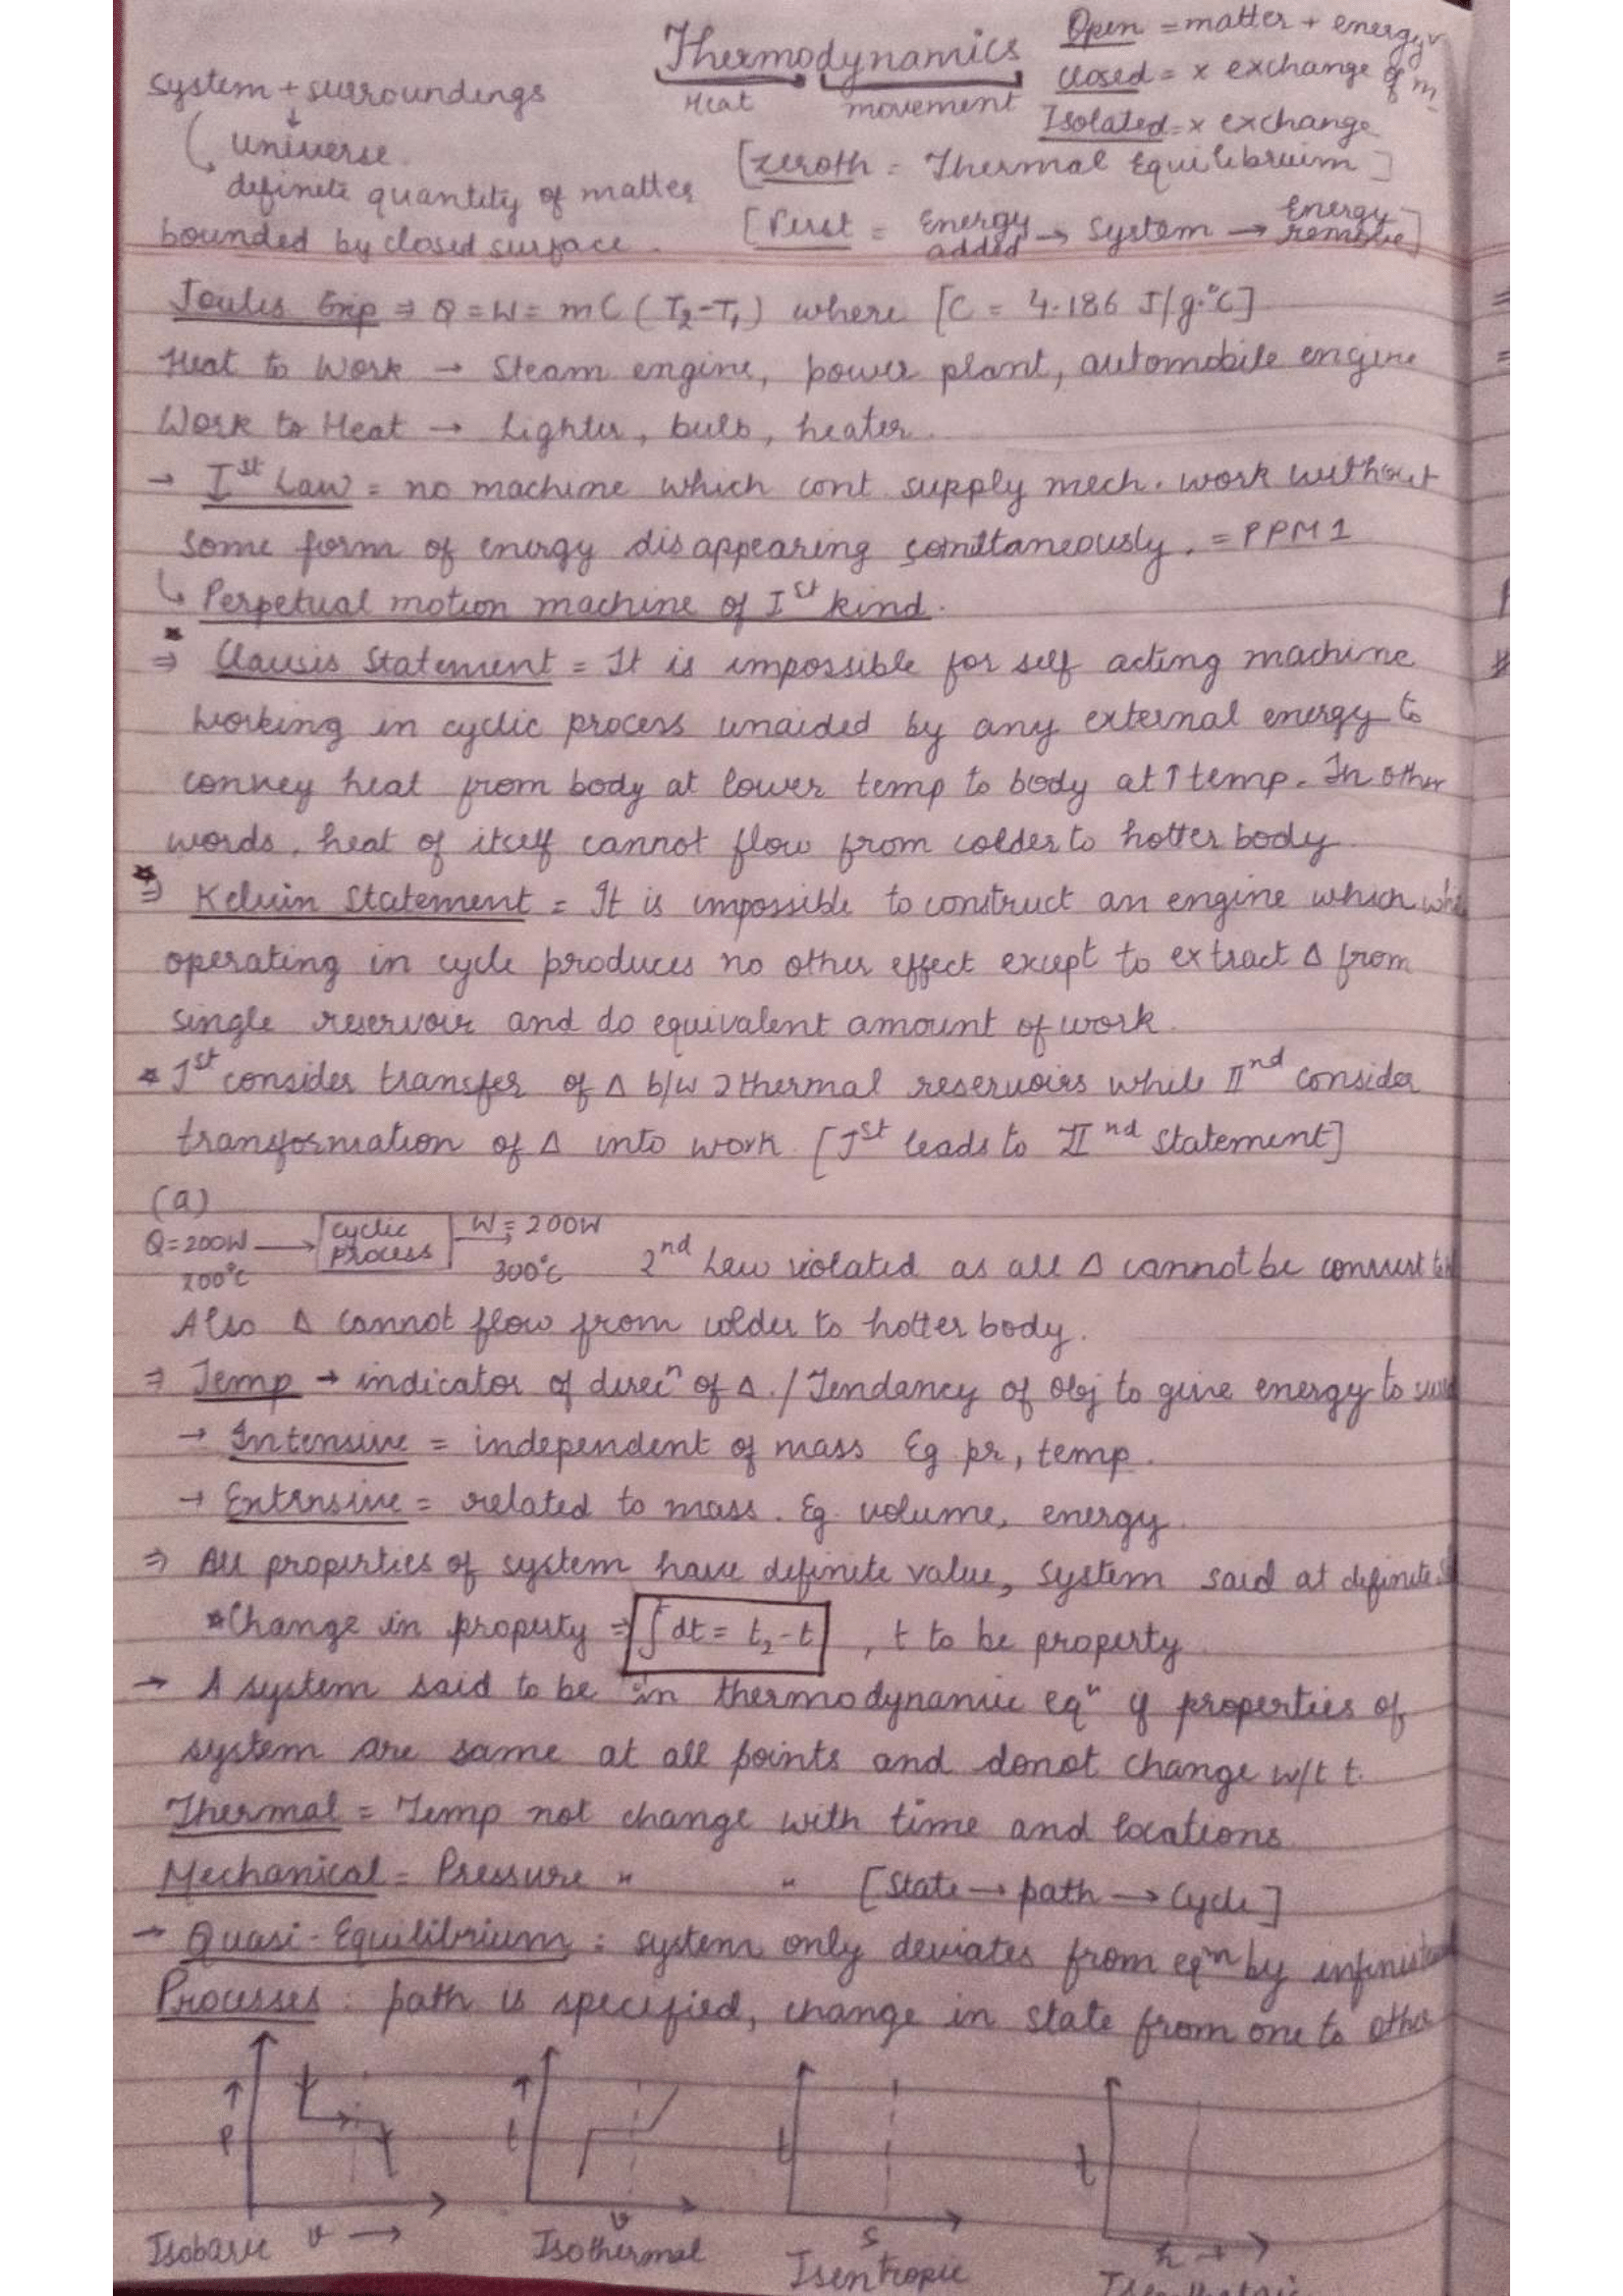 Thermodynamics
Heat movement
Open = matter + energy
closed = x exchange of m
Isolated = x exchange
System + surroundings
↓
Universe
definite quantity of matter
bounded by closed surface.
[zeroth = Thermal Equilibruim]
[First = Energy added → System → Energy remove]
Joules Exp ⇒ Q = W = mC (T₂-T₁) where [C = 4.186 J/g.°C]
Heat to Work → Steam engine, power plant, automobile engine
Work to Heat → Lighter, bulb, heater.
→ Iˢᵗ Law = no machine which cont. supply mech. work without
some form of energy disappearing = PPM1
↳ Perpetual motion machine of Iˢᵗ kind.
⇒ Clausis Statement = It is impossible for self acting machine
working in cyclic process unaided by any external energy to
convey heat from body at lower temp to body at ↑ temp. In other
words, heat of itself cannot flow from colder to hotter body.
⇒ Kelvin Statement = It is impossible to construct an engine which
operating in cycle produces no other effect except to extract Δ from
single reservoir and do equivalent amount of work.
* Iˢᵗ consider transfer of Δ b/w 2 thermal reservoirs while IIⁿᵈ consider
transformation of Δ into work [Iˢᵗ leads to IIⁿᵈ Statement]
(a)
Q=200W → cyclic process → W = 200W
300°C 2ⁿᵈ Law violated as all Δ cannot be convert
Also Δ cannot flow from colder to hotter body.
⇒ Temp → indicator of direcⁿ of Δ. / Tendancy of obj to give energy to
→ Intensive = independent of mass Eg. pr, temp.
→ Extensive = related to mass. Eg. volume, energy.
⇒ All properties of system have definite value, system said at definite
*Change in property ⇒ ∫dt = t₂-t , t to be property
→ A system said to be in thermodynamic eqⁿ if properties of
system are same at all points and donot change w/t t.
Thermal = Temp not change with time and locations
Mechanical = Pressure " " [State → path → Cycle]
→ Quasi-Equilibrium : system only deviates from eqᵐ by
Processes : path is specified, change in state from one to other
↑ p ↑ t t t
v → v s h →
Isobaric Isothermal Isentropic